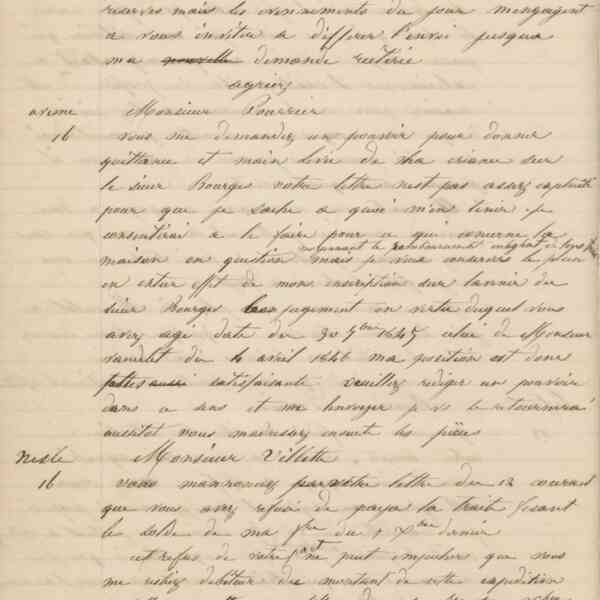 reserves mais les evennements du jour mengagent
a vous invitér a differer l'envoi jusqua
ma nouvelle demande reitérié
agriez
avesne Monsieur Pourrier
16 vous me demandez un pouvoir pour donner
quittance et main livée de ma criance sur
le sieur Bourges votre lettre nest pas assez explicite
pour que je sache a quoi m'en tenir je
consentirai a le faire pour ce qui concerne la
maison en question mais je veux conserver le plein
moyennant le remboursement intégral
en entier effet de mon inscription sur lavoir du
sieur Bourges jugement en vertu duquel vous
avez agi date du 30 7bre 1845 celui de Monsieur
du 4 avril 1846 ma position est donc
satisfaisante veuillez rediger un pouvoir
dans ce sens et me lenvoyer je vs le retournerai
aussitot vous madressez ensuite les pieces
Nesle Monsieur Villette
16 vous mannoncez par votre lettre du 12 courant
que vous avez refusé de payer la traite fesant
le solde de ma fre du 1 Xbre dernier
cet refus de votre part ne peut empecher que vous
me restiez debiteur du montant de cette expedition